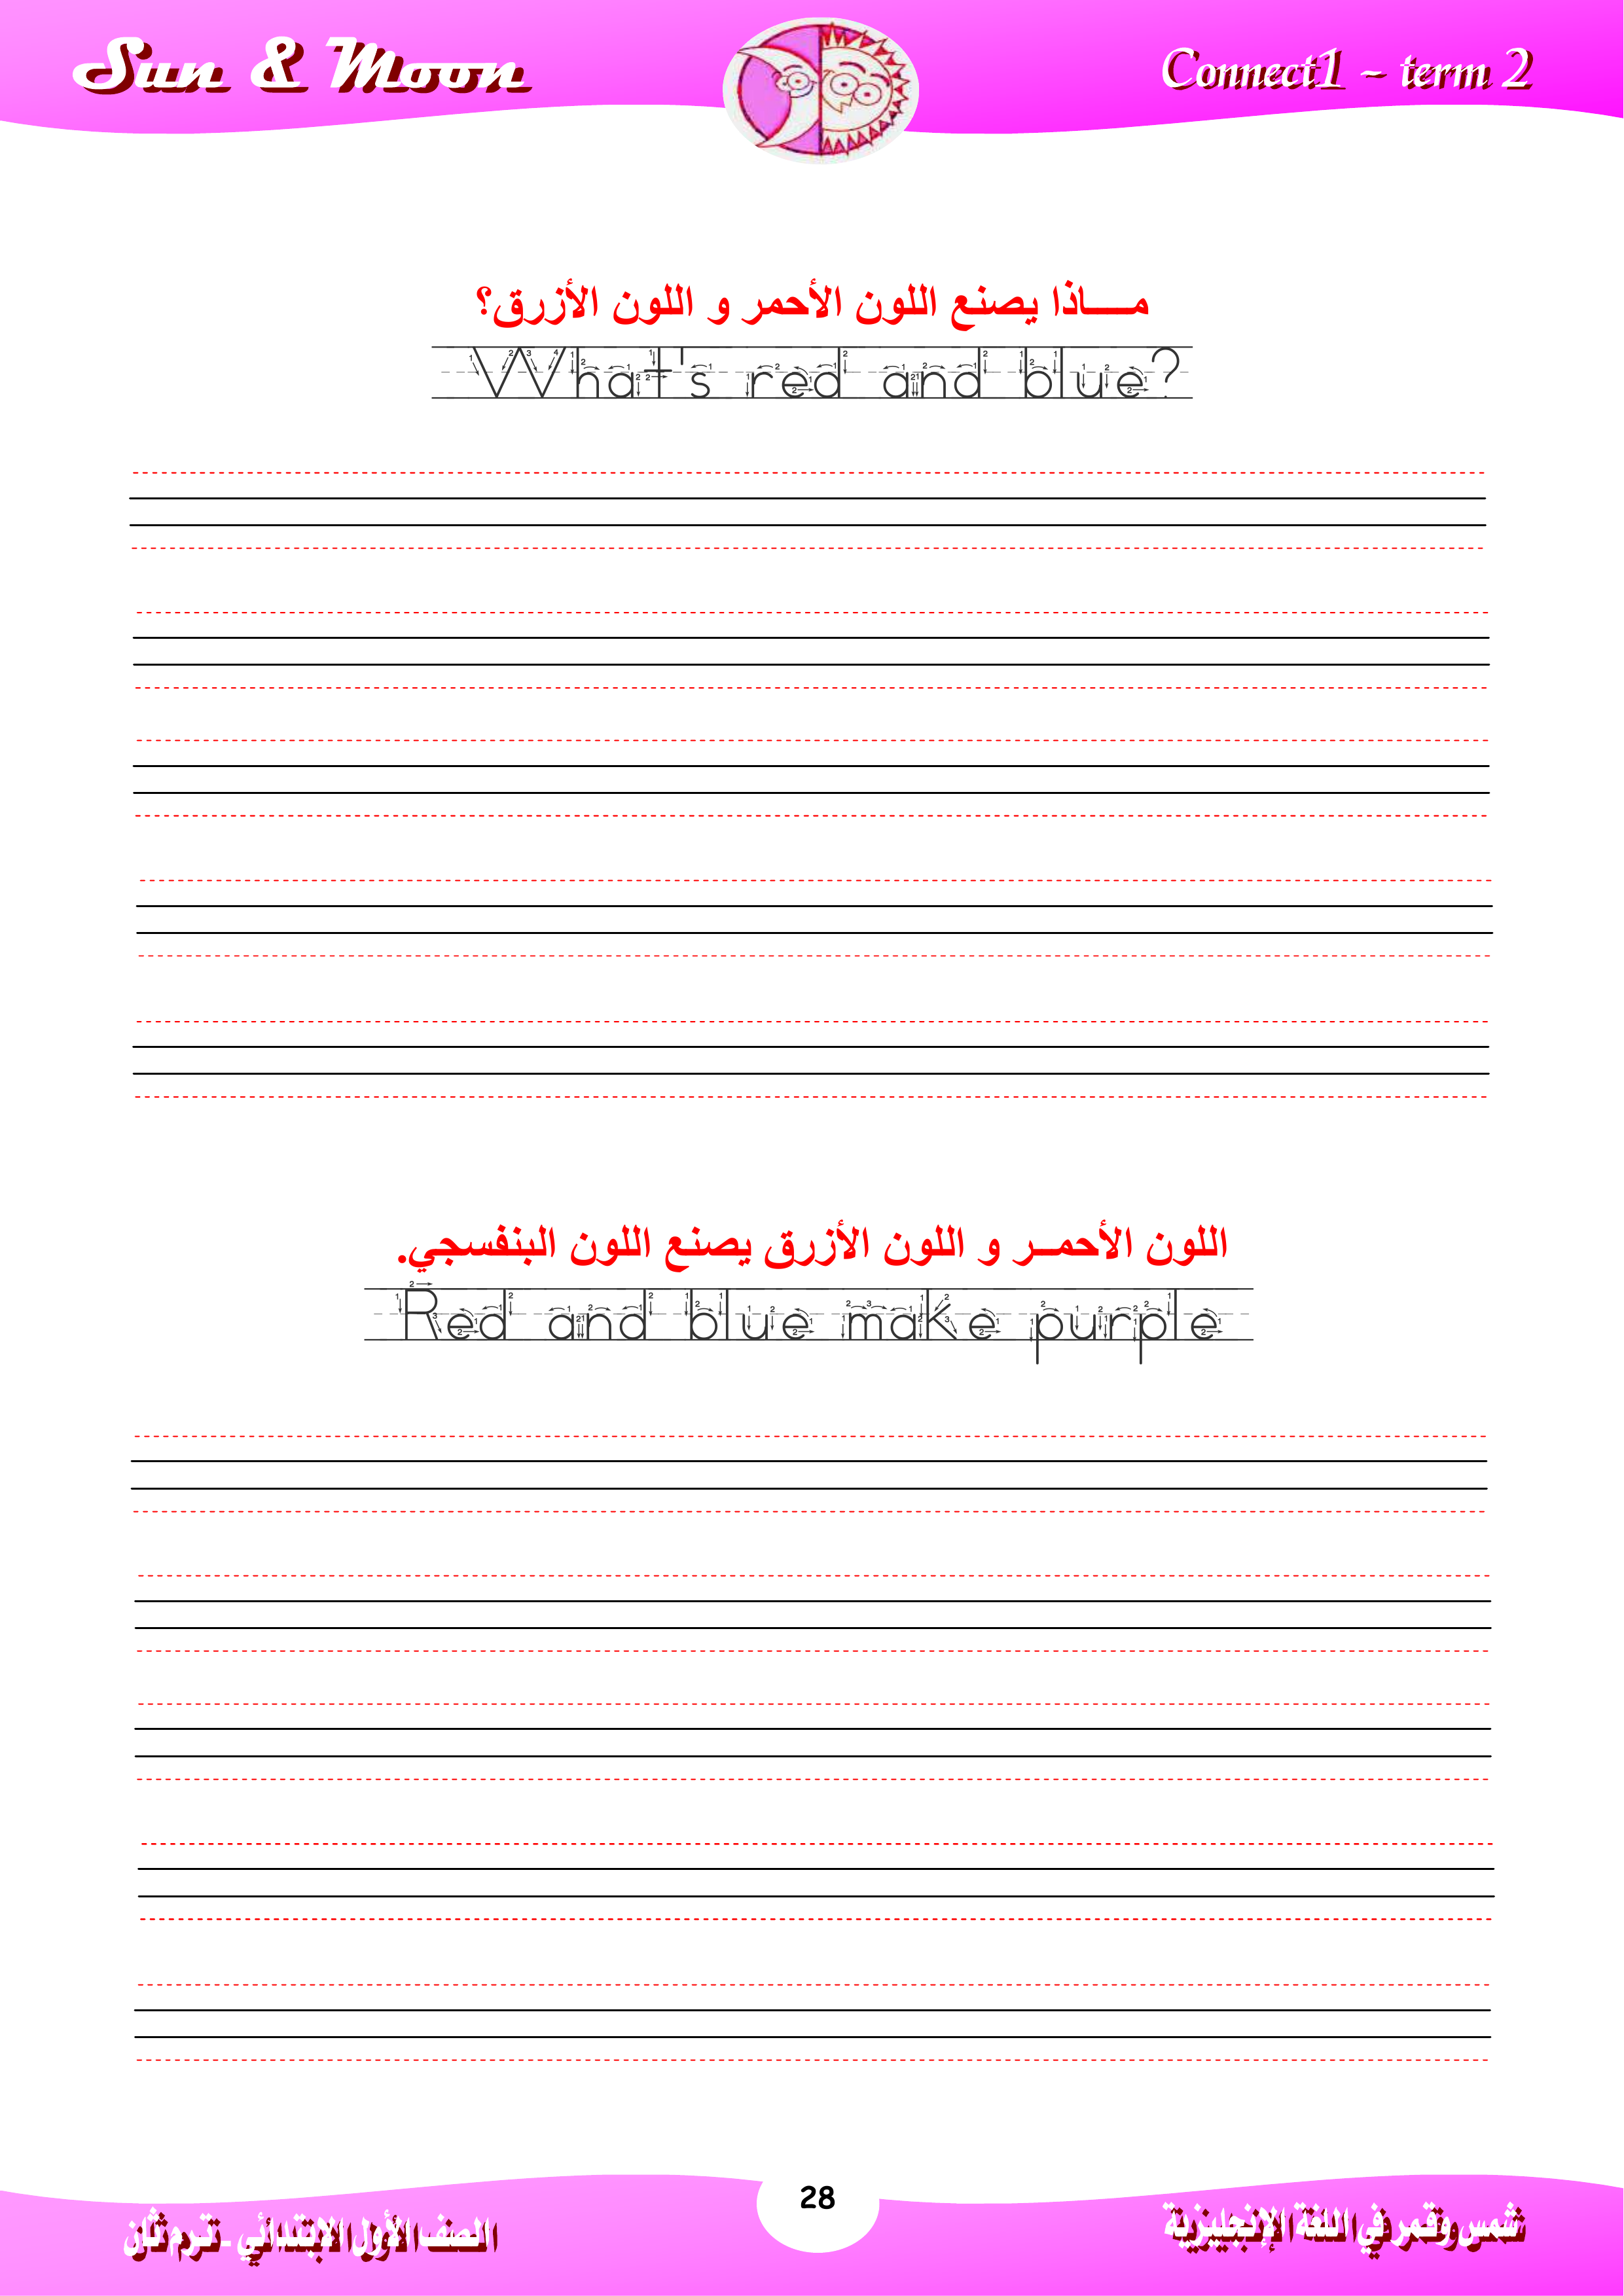 Sun & Moon
Connect1 - term 2
مـــــاذا يصنع اللون الأحمر و اللون الأزرق؟
What's red and blue?
اللون الأحمـــر و اللون الأزرق يصنع اللون البنفسجي.
Red and blue make purple
28
الصف الأول الابتدائي - ترم ثان
شمس وقمر في اللغة الإنجليزية